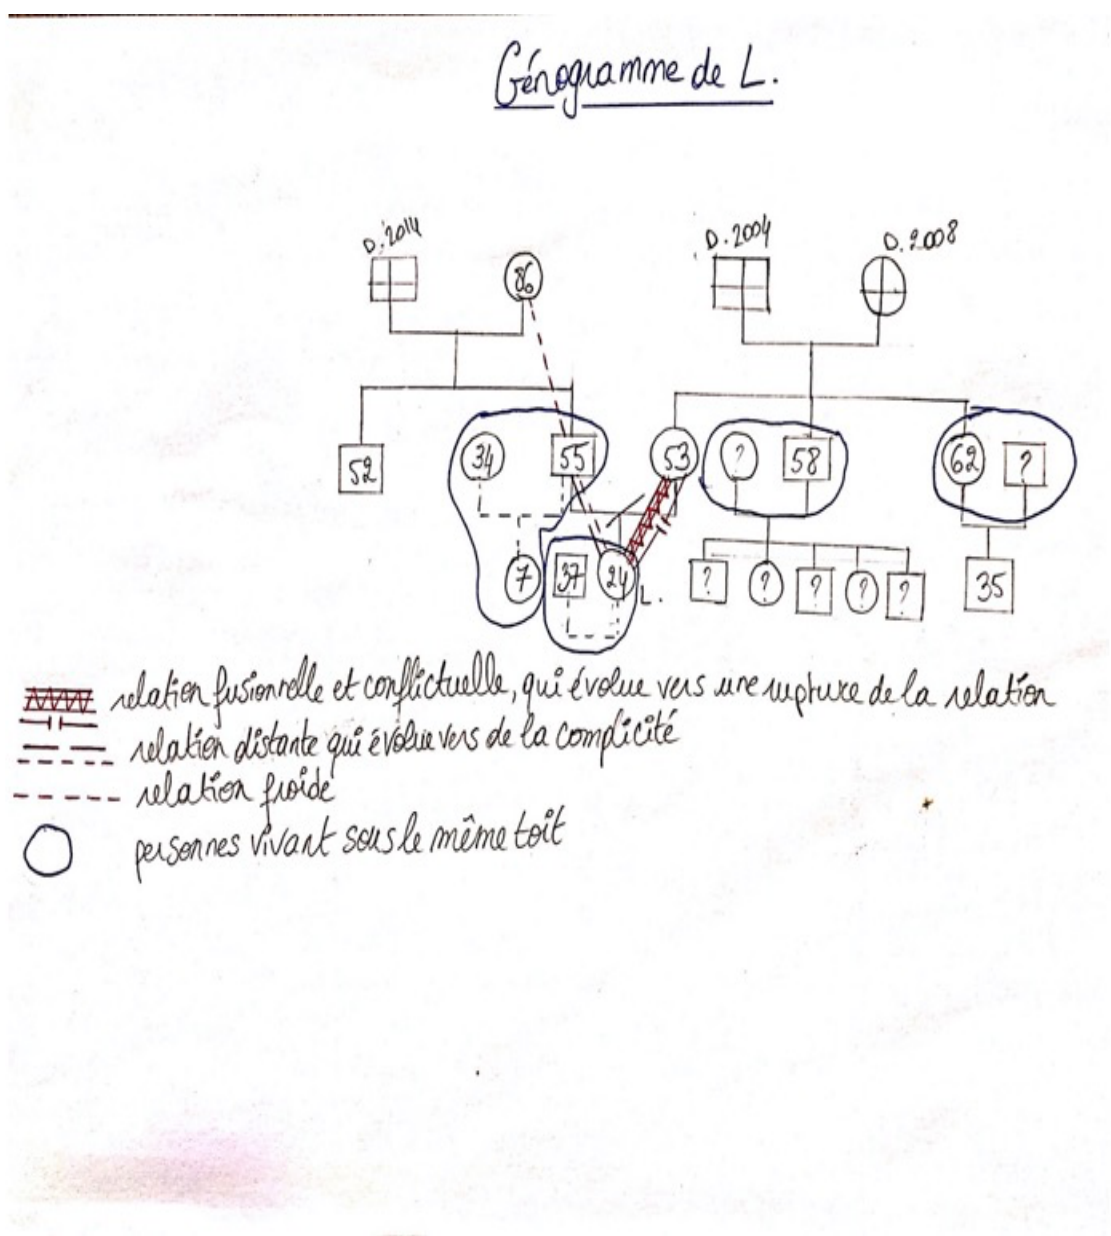 Génogramme de L.
D. 2014
D. 2004
D. 2008
86
52
34
55
53
?
58
62
?
7
37
24
L.
?
?
?
?
?
35
relation fusionnelle et conflictuelle, qui évolue vers une rupture de la relation
relation distante qui évolue vers de la complicité
relation froide
personnes vivant sous le même toit